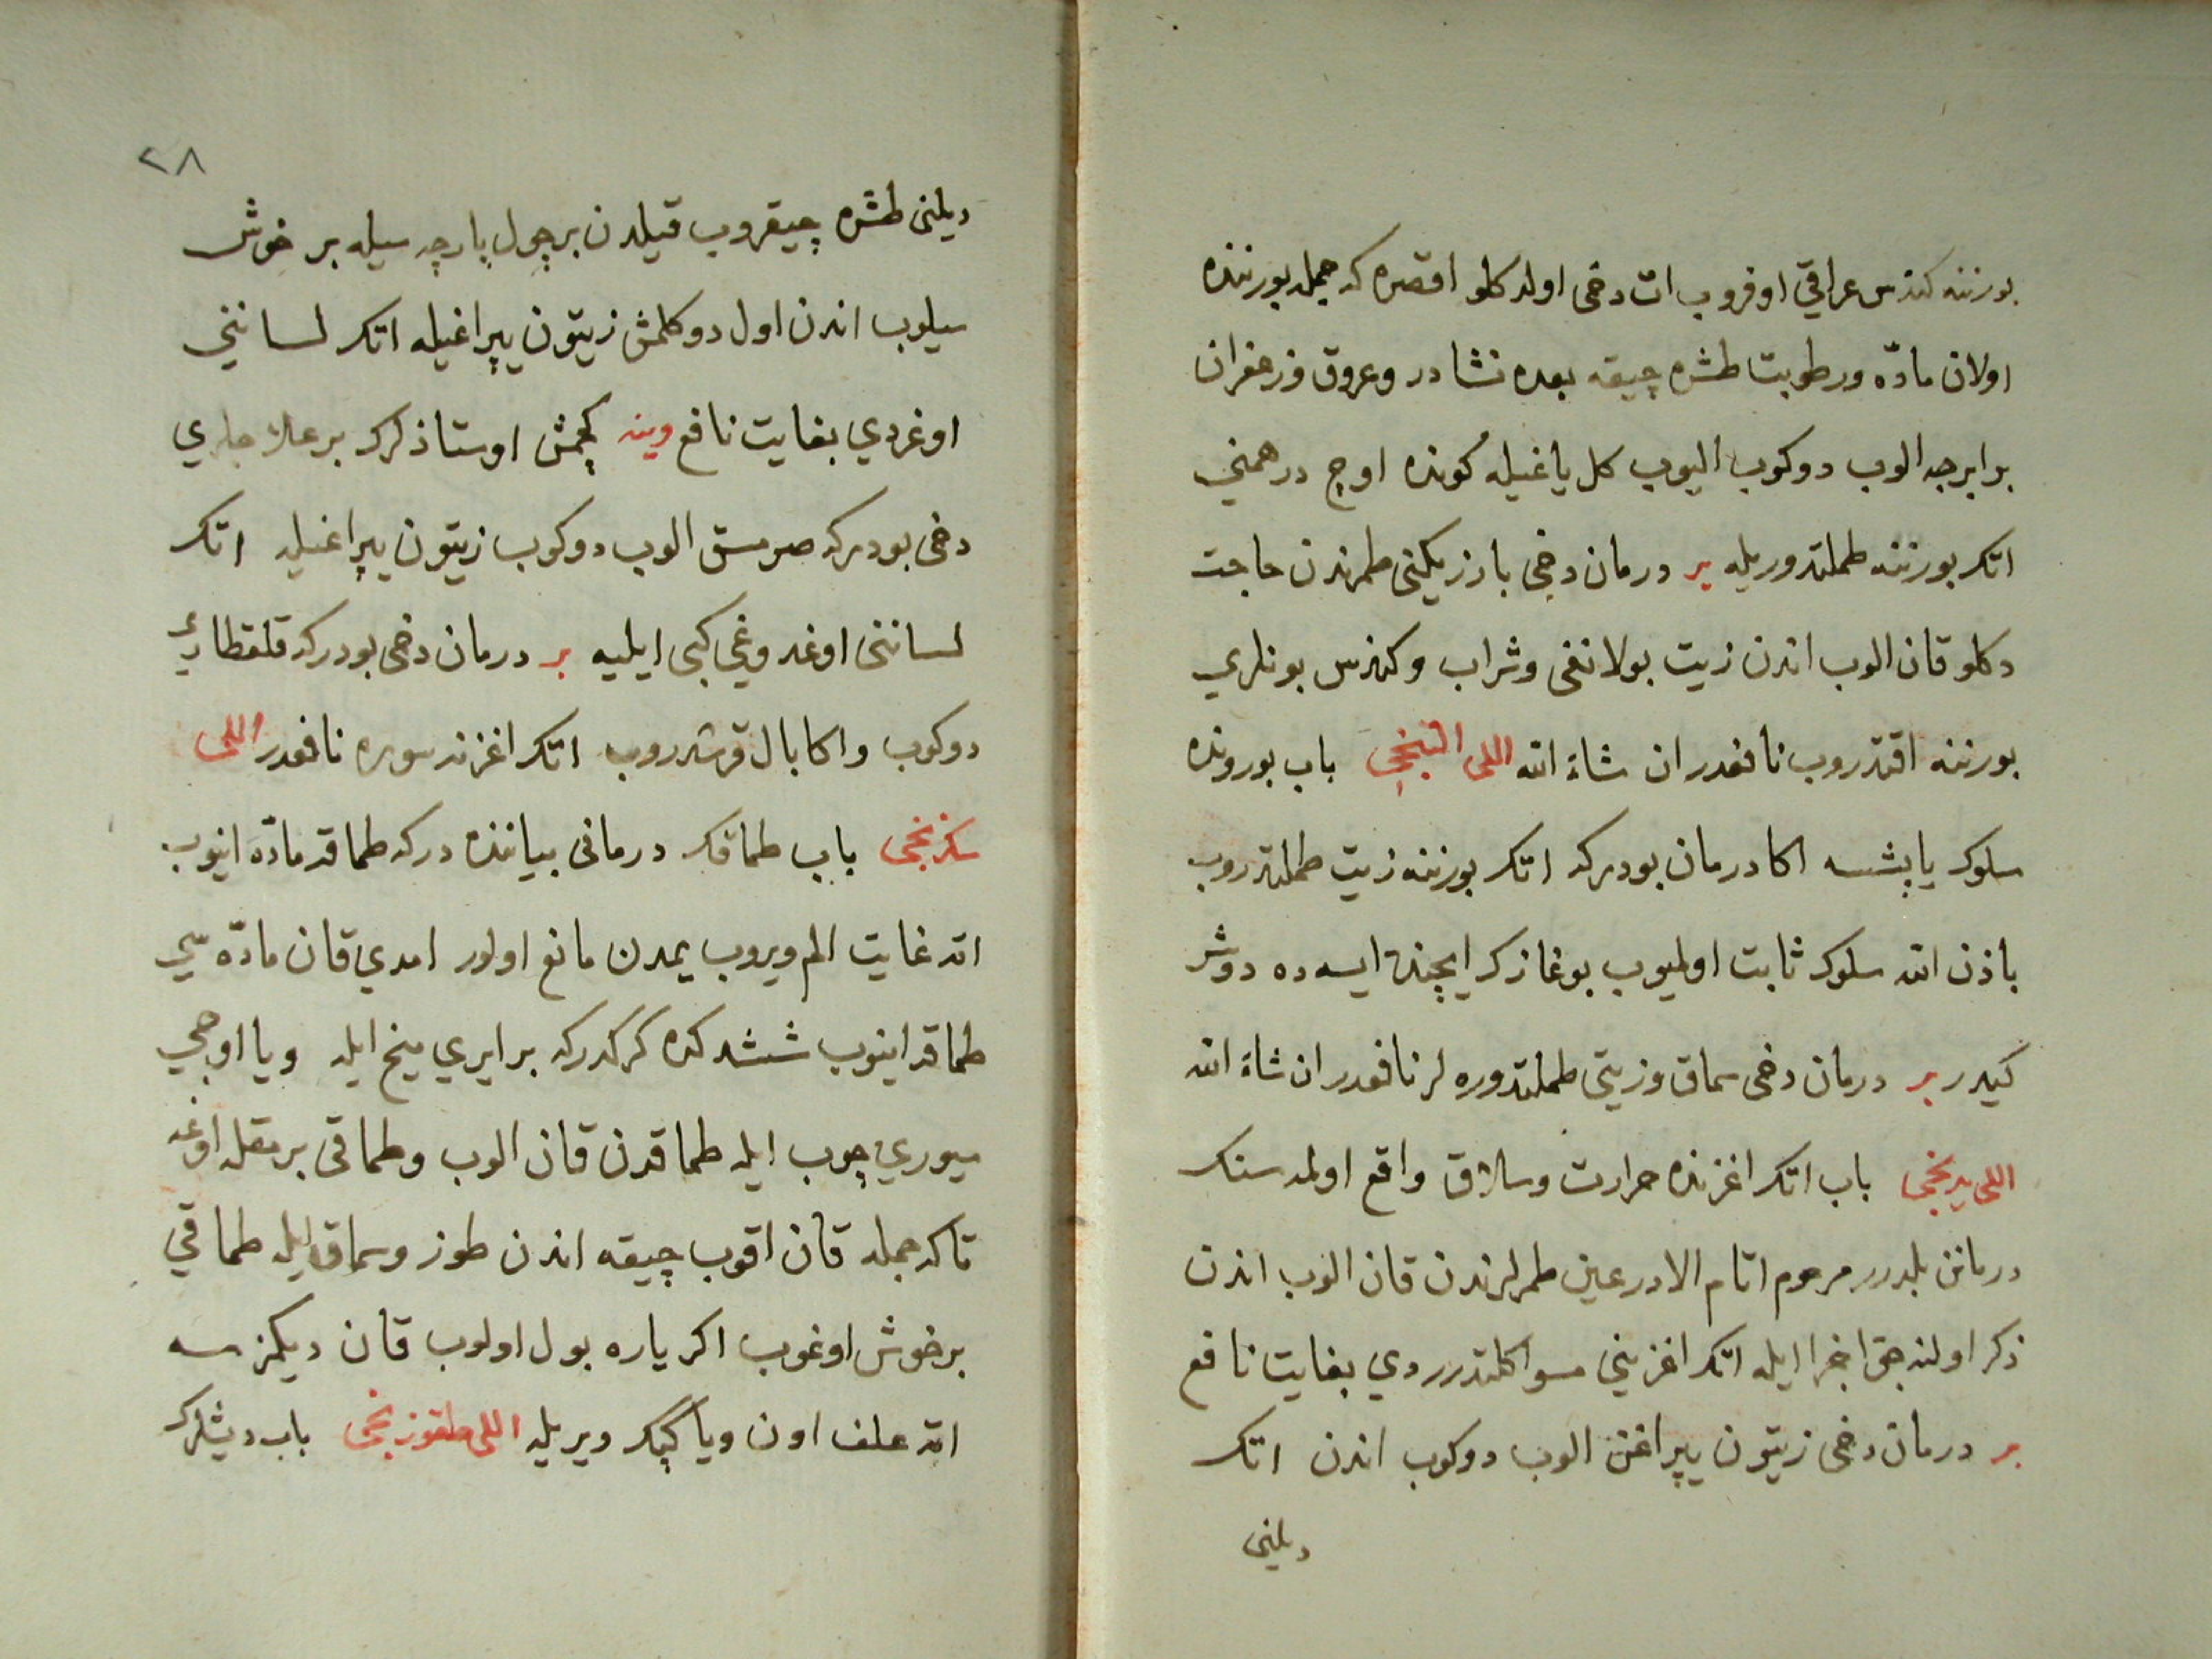 بورننه كندس عراقي اوفروب ات دخى اولدكلو اقصره كه جمله بورننده
اولان مادّه ورطوبت طشره چيقه بعده نشادر وعروق وزعفران
برابرجه الوب دوكوب اليوب كل ياغيله كونده اوچ درهمنى
اتك بورننه طملتدوريله بر درمان دخى بازيكنى طمرندن حاجت
دكلو قان الوب اندن زيت بولانغى وشراب وكندس بونلري
بورننه اقتدروب نافعدر ان شاء الله اللى التنجى باب بوروننده
سلوك ياپشسه اكا درمان بودركه اتك بورننه زيت طملتدروب
باذن الله سلوك ثابت اولميوب بوغازك ايچنده ايسه ده دوشر
كيدر بر درمان دخى سماق وزيتى طملتدوره لر نافعدر ان شاء الله
اللى يدنجى باب اتك اغزنده حرارت وسلاق واقع اولمه سنك
درمانن بلدرر مرحوم اتام الادرعين طمرلرندن قان الوب اندن
ذكر اولنه جق اجزا ايله اتك اغزينى مسواكلتدرردي بغايت نافع
بر درمان دخى زيتون يپراغن الوب دوكوب اندن اتك
ديلنى
٢٨
ديلنى طشره چيقروب قيلدن بر چول پارچه سيله بر خوش
سيلوب اندن اول دوكلمش زيتون يپراغيله اتك لساننى
اوغردي بغايت نافع وينه كچمش اوستاذلرك بر علاجلري
دخى بودركه صرمسق الوب دوكوب زيتون يپراغيله اتك
لساننى اوغدوغي كبى ايليه بر درمان دخى بودركه قلقطاري
دوكوب واكا بال قرشدروب اتك اغزنه سوره نافعدر اللى
سكزنجى باب طماقك درمانى بياننده دركه طماقه مادّه اينوب
اته غايت الم ويروب يمدن مانع اولور امدي قان مادّه سى
طماقه اينوب ششدكده كركدركه بر ايري ميخ ايله ويا اوجى
سيوري چوب ايله طماقدن قان الوب وطماقى برمقله اوغه
تاكه جمله قان اقوب چيقه اندن طوز وسماق ايله طماقي
بر خوش اوغوب اكر ياره بول اولوب قان ديكمزسه
اته علف اون ويا كپك ويريله اللى طقوزنجى باب ديشلرك